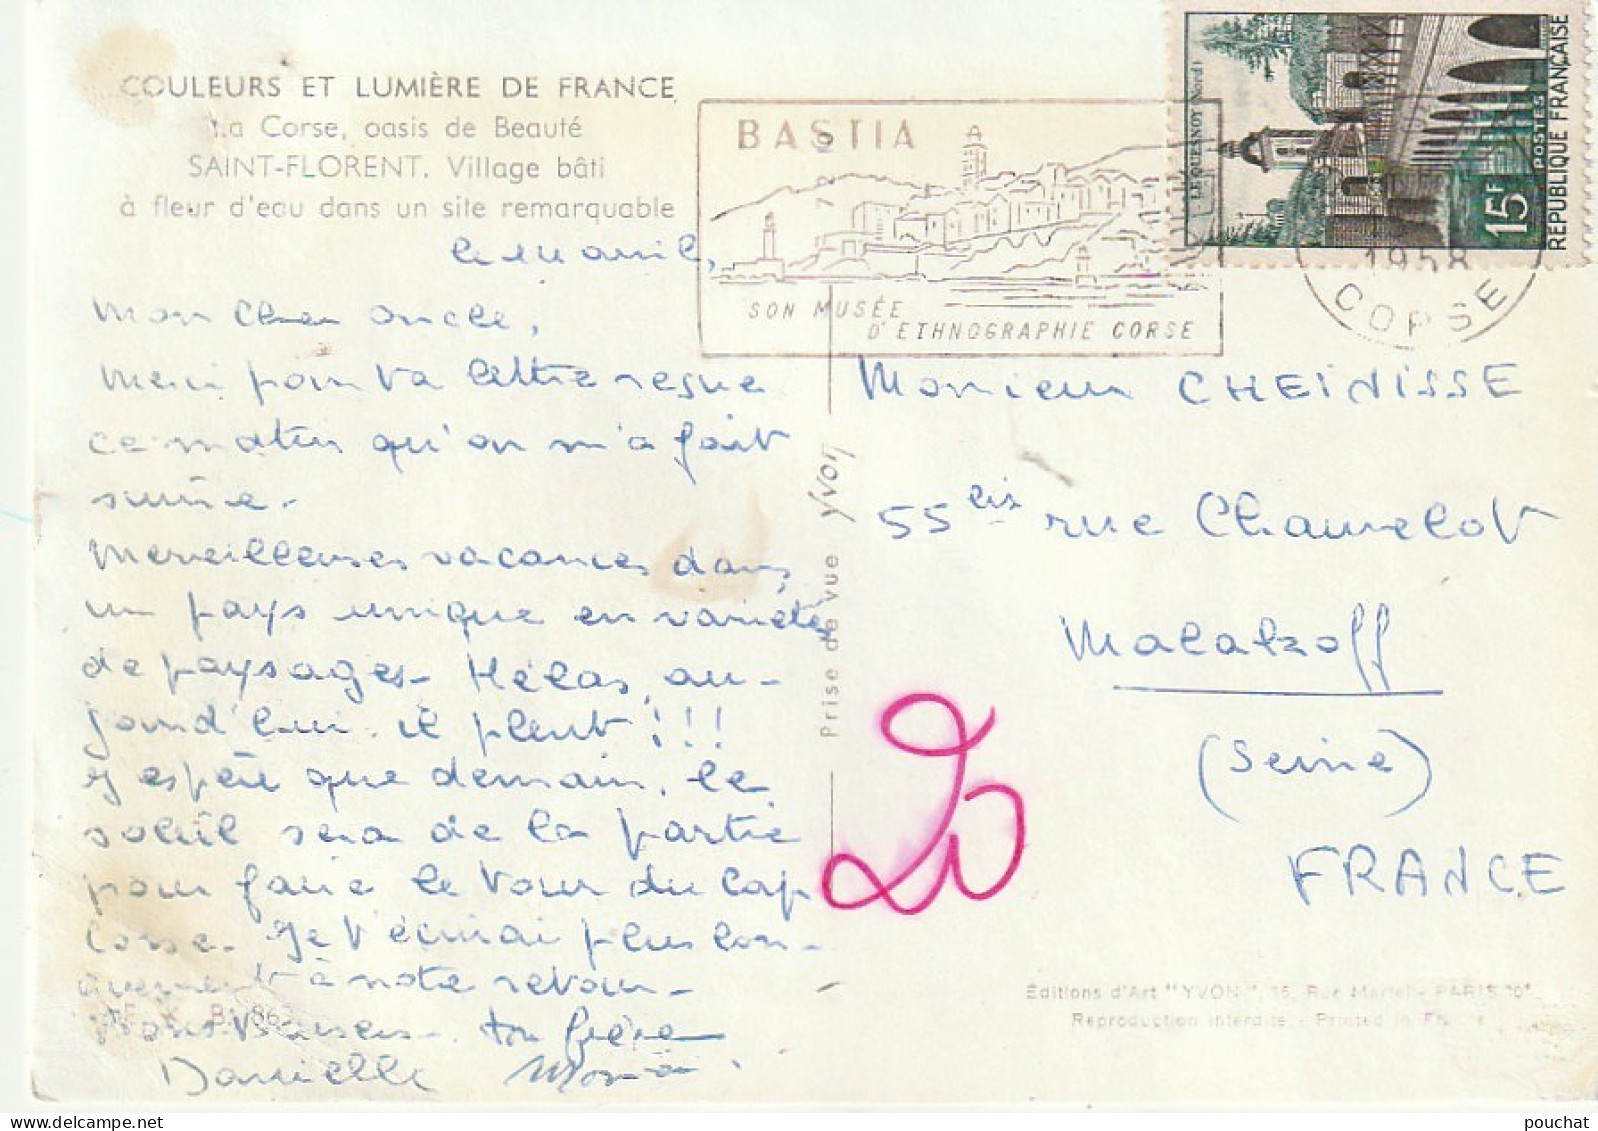 COULEURS ET LUMIÈRE DE FRANCE
La Corse, oasis de Beauté
SAINT-FLORENT. Village bâti
à fleur d'eau dans un site remarquable
avril,
Mon cher oncle,
Merci pour ta lettre reçue
ce matin qu'on m'a fait
suivre.
Merveilleuses vacances dans
un pays unique en variétés
de paysages. Hélas, au-
jourd'hui il pleut !!!
J'espère que demain, le
soleil sera de la partie
pour faire le tour du Cap
corse. Je t'écrirai plus lon-
guement à notre retour.
Bons Baisers. ton frère
Danielle
BASTIA
SON MUSÉE
D'ETHNOGRAPHIE CORSE
LE QUESNOY (Nord)
15F
POSTES
RÉPUBLIQUE FRANÇAISE
1958
CORSE
Prise de vue Yvon
Monsieur CHEINISSE
55 bis rue Chauvelot
Malakoff
(Seine)
FRANCE
Éditions d'Art "YVON", 15, Rue Martel - PARIS-10e
Reproduction interdite - Printed in France
pouchat